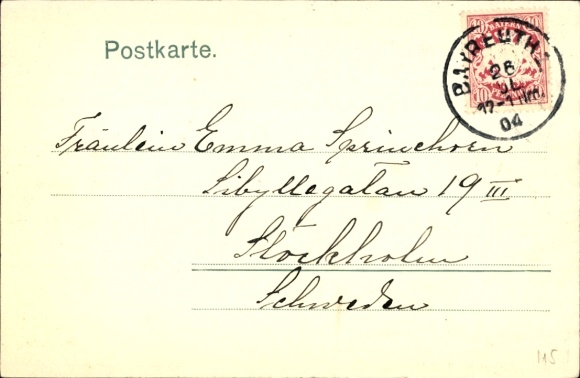 Postkarte.
BAYERN
10 10
BAYREUTH 1
26
JUL
12-1 Nm.
04
Fräulein Emma Sprinchorn
Sibyllegatan 19 III
Stockholm
Schweden
115